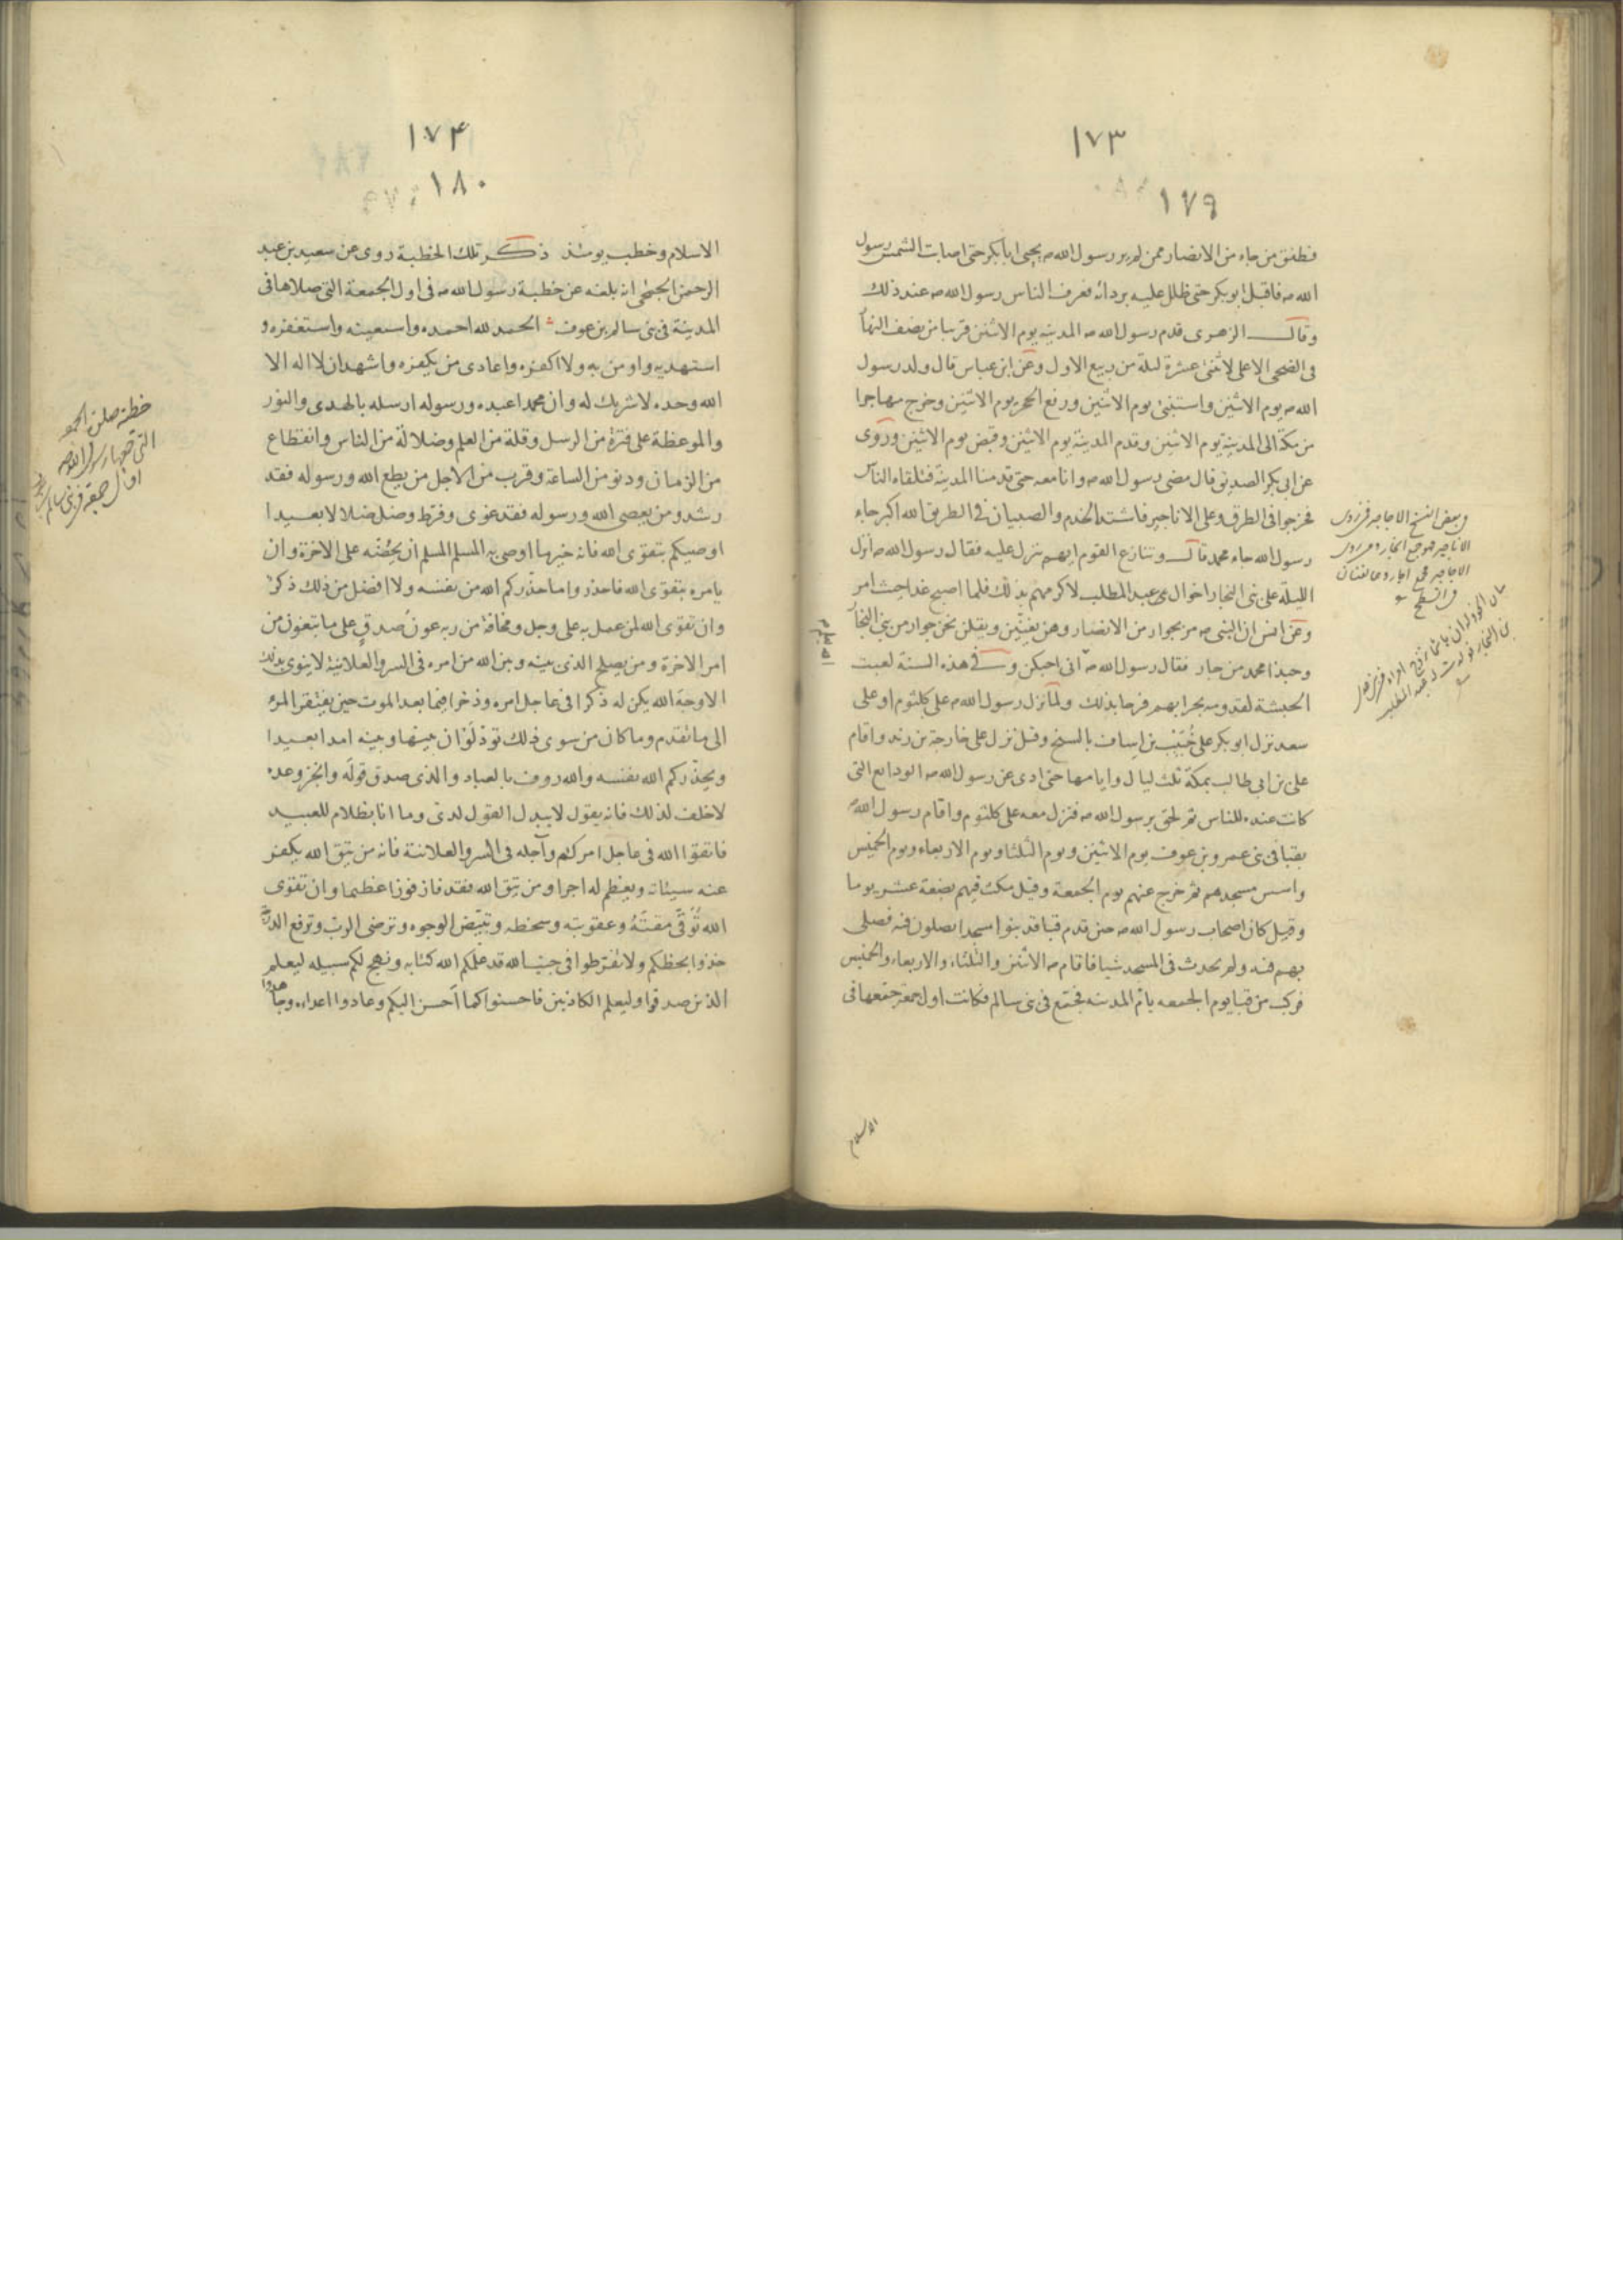 ١٧٣
١٧٩
فطفق من جاء من الانصار ممن لم ير رسول الله ص يحيى ابا بكر حتى اصابت الشمس رسول
الله ص فاقبل ابو بكر حتى ظلل عليه بردائه فعرف الناس رسول الله ص عند ذلك
وقال الزهرى قدم رسول الله ص المدينة يوم الاثنين قريبا من نصف النهار
فى الضحى الاعلى لاثنتى عشرة ليلة من ربيع الاول وعن ابن عباس قال ولد رسول
الله ص يوم الاثنين واستنبئ يوم الاثنين ورفع الحجر يوم الاثنين وخرج مهاجرا
من مكة الى المدينة يوم الاثنين وقدم المدينة يوم الاثنين وقبض يوم الاثنين وروى
عن ابى بكر الصديق قال مضى رسول الله ص وانا معه حتى قدمنا المدينة فتلقاه الناس
فخرجوا فى الطرق وعلى الاناجير فاشتد الخدم والصبيان فى الطريق الله اكبر جاء
رسول الله جاء محمد قال وتنازع القوم ايهم ينزل عليه فقال رسول الله ص انزل
الليلة على بنى النجار اخوال عبد المطلب لاكرمهم بذلك فلما اصبح غدا حيث امر
وعن انس ان النبى ص مر بجوار من الانصار وهن يغنين ويقلن نحن جوار من بنى النجار
وحبذا محمد من جار فقال رسول الله ص انى احبكن وفى هذه السنة لعبت
الحبشة لقدومه بحرابهم فرحا بذلك ولما نزل رسول الله ص على كلثوم او على
سعد نزل ابو بكر على خُبَيْب بن اساف بالسنح وقيل نزل على خارجة بن زيد واقام
على بن ابى طالب بمكة ثلث ليال وايامها حتى ادى عن رسول الله ص الودايع التى
كانت عنده للناس ثم لحق برسول الله ص فنزل معه على كلثوم واقام رسول الله
بقبا فى بنى عمرو بن عوف يوم الاثنين ويوم الثلثا ويوم الاربعاء ويوم الخميس
واسس مسجدهم ثم خرج عنهم يوم الجمعة وقيل مكث فيهم بضعة عشر يوما
وقيل كان اصحاب رسول الله ص حين قدم قبا قد بنوا مسجدا يصلون فيه فصلى
بهم فيه ولم يحدث فى المسجد شيا فاقام ص الاثنين والثلثاء والاربعاء والخميس
فركب من قبا يوم الجمعه يأم المدينه فجمّع فى بنى سالم فكانت اول جمعة جمّعها فى
الاسلام
وبعض النسخ الاجاجير
١٧۴
١٨٠
الاسلام وخطب يومئذ ذكر تلك الخطبة روى عن سعيد بن عبد
الرحمن الجمحى انه بلغه عن خطبة رسول الله ص فى اول الجمعة التى صلاها فى
المدينة فى بنى سالم بن عوف الحمد لله احمده واستعينه واستغفره و
استهديه واومن به ولا اكفره واعادى من يكفره واشهد ان لا اله الا
الله وحده لا شريك له وان محمدا عبده ورسوله ارسله بالهدى والنور
والموعظة على فترة من الرسل وقلة من العلم وضلالة من الناس وانقطاع
من الزمان ودنو من الساعة وقرب من الاجل من يطع الله ورسوله فقد
رشد ومن يعصى الله ورسوله فقد غوى وفرط وضل ضلالا بعيدا
اوصيكم بتقوى الله فانه خير ما اوصى به المسلم المسلم ان يحُضّه على الاخرة وان
يامره بتقوى الله فاحذروا ما حذركم الله من نفسه ولا افضل من ذلك ذكرا
وان تقوى الله لمن عمل به على وجل ومخافة من ربه عون صدق على ما تبغون من
امر الاخرة ومن يصلح الذى بينه وبين الله من امره فى السر والعلانية لا ينوى بذلك
الا وجه الله يكن له ذكرا فى عاجل امره وذخرا فيما بعد الموت حين يفتقر المرء
الى ما تقدم وما كان من سوى ذلك تود لَوْ ان بينها وبينه امدا بعيدا
ويحذركم الله نفسه والله رؤف بالعباد والذى صدق قوله وانجز وعده
لا خلف لذلك فانه يقول لا يبدل القول لدى وما انا بظلام للعبيد
فاتقوا الله فى عاجل امركم وآجله فى السر والعلانية فانه من يتق الله يكفر
عنه سيئاته ويعظم له اجرا ومن يتق الله فقد فاز فوزا عظيما وان تقوى
الله تُوَقّى مقته وعقوبته وسخطه وتبيّض الوجوه وترضى الرب وترفع الدرجة
خذوا بحظكم ولا تفرطوا فى جنب الله قد علمكم الله كتابه ونهج لكم سبيله ليعلم
الذين صدقوا وليعلم الكاذبين فاحسنوا كما احسن اليكم وعادوا اعداءه وجاهدوا
خطبة صلوة الجمعة
التى صلاها رسول الله ص
اول جمعة فى بنى سالم